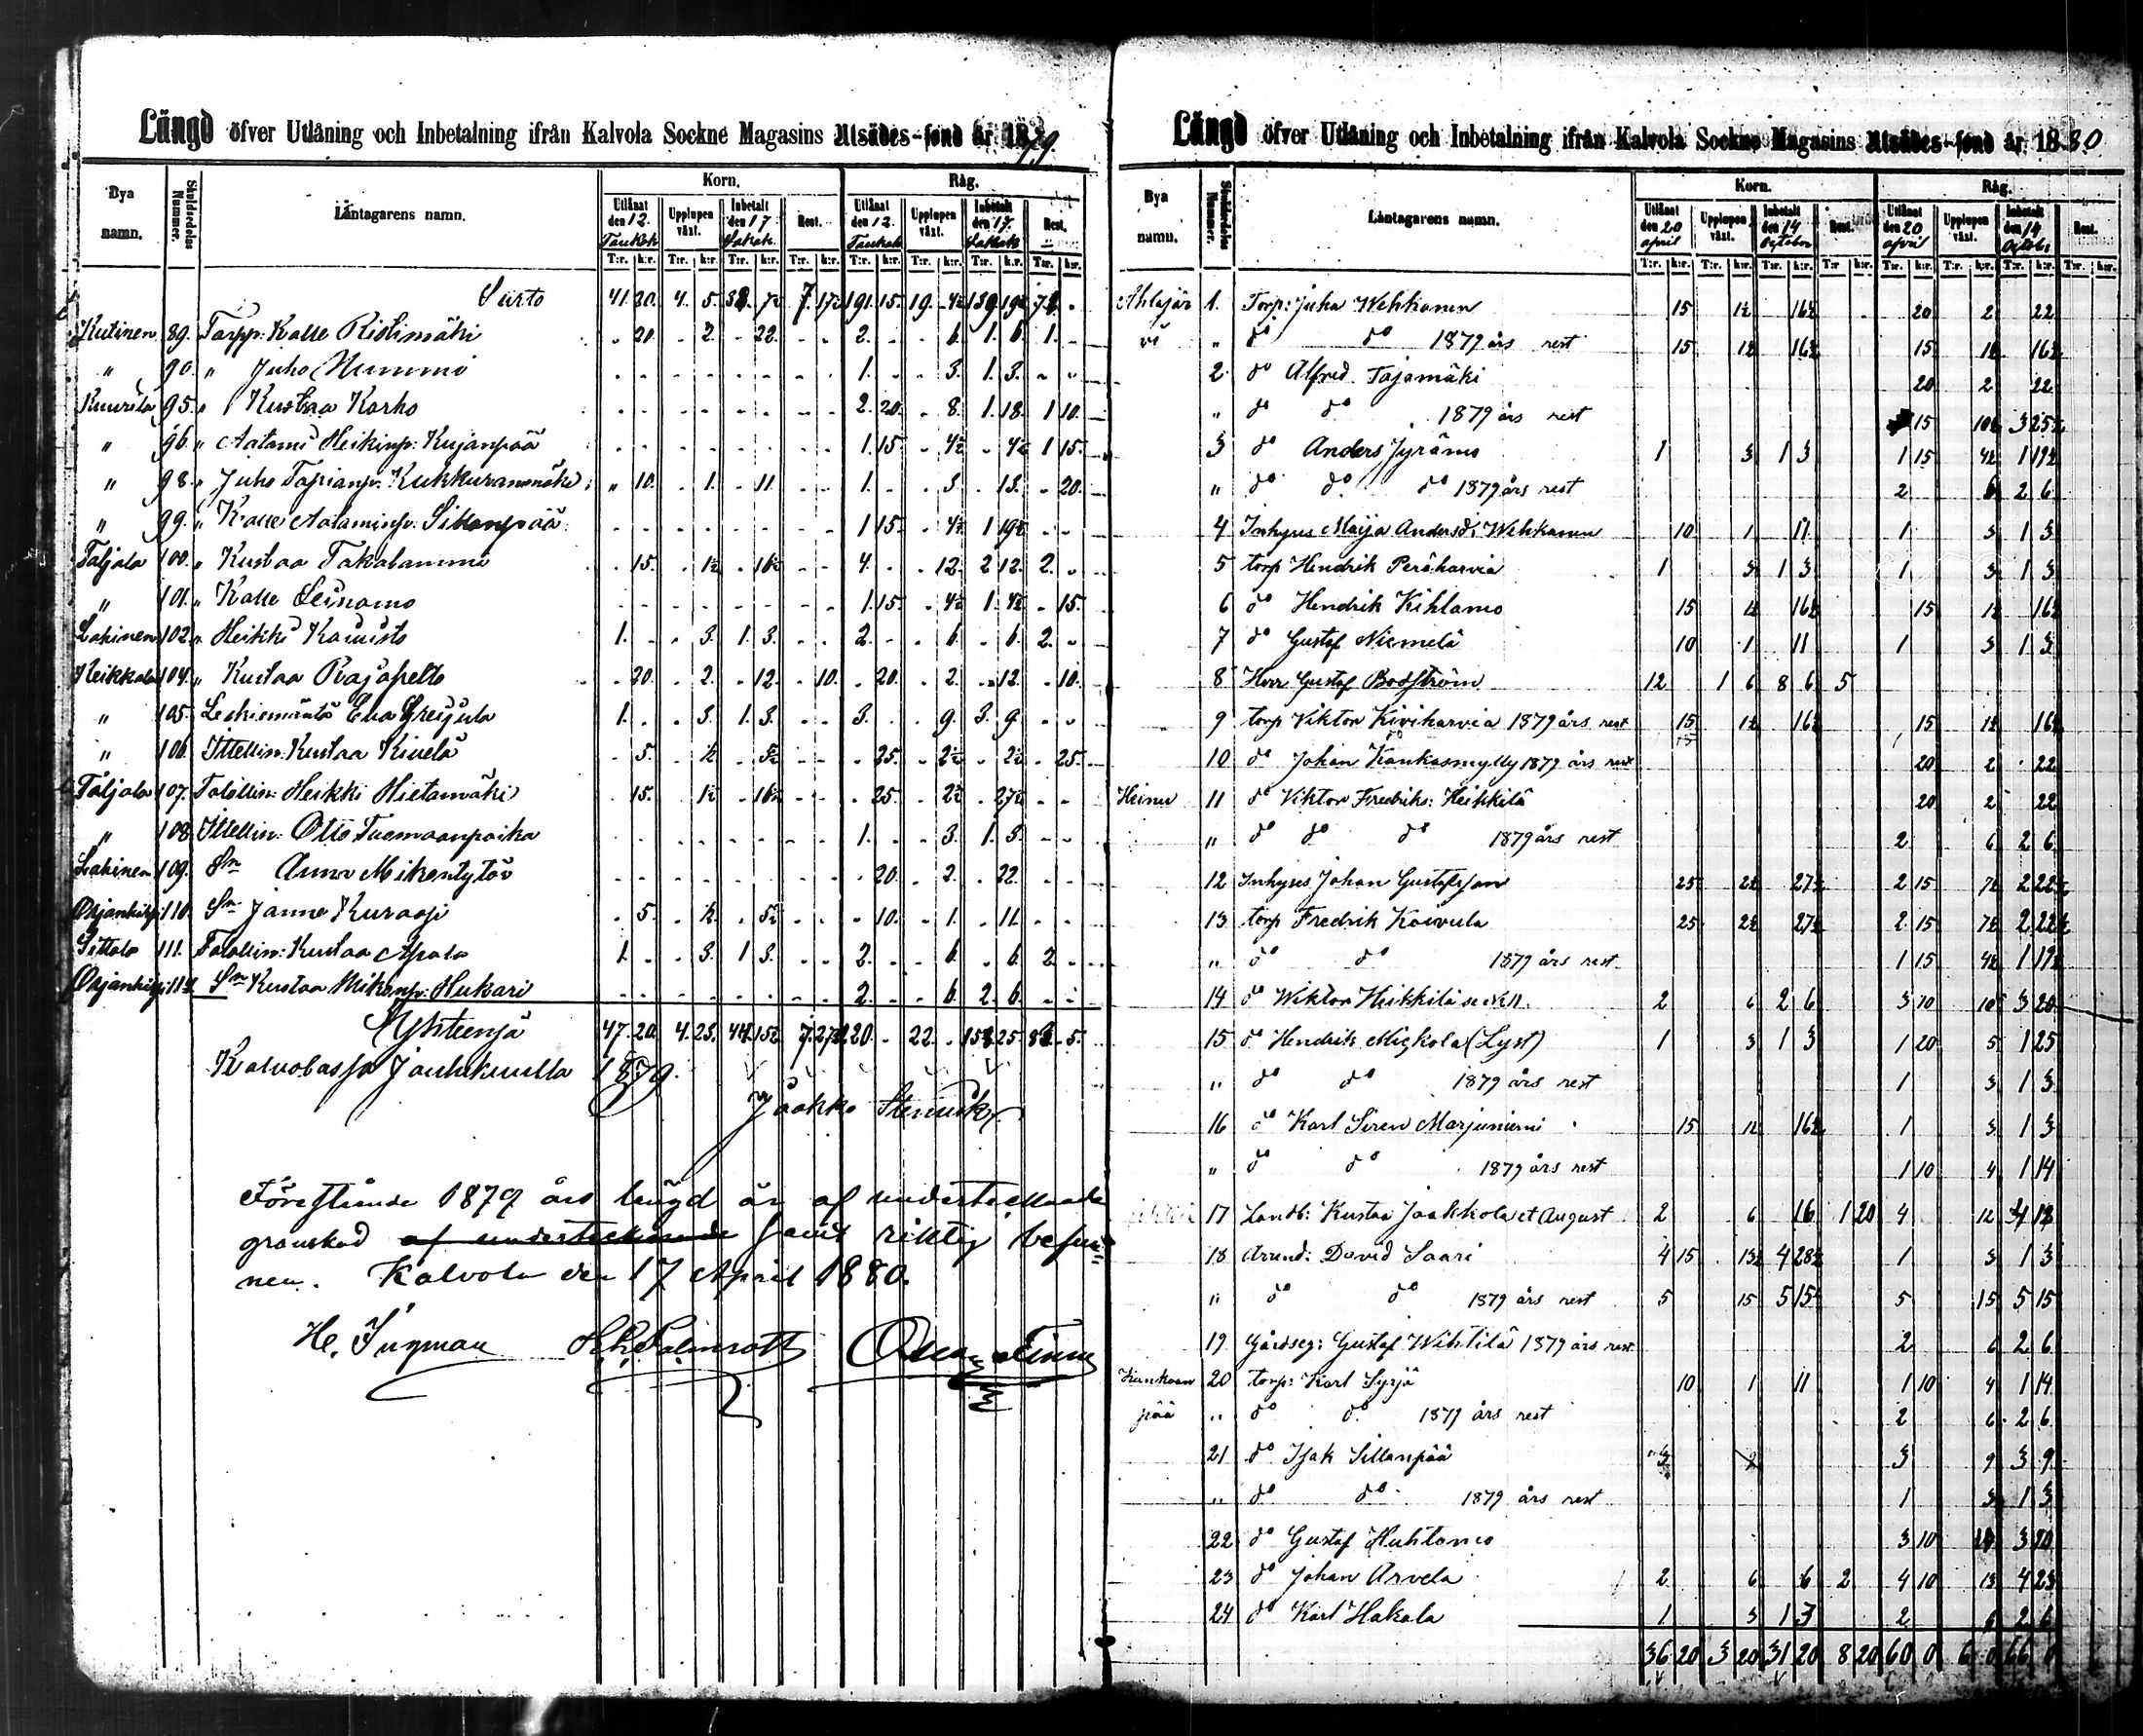 Längd öfver Utlåning och Inbetalning ifrån Kalvola Sockne Magasins Utsädes-fond år 1879.
Bya namn. Skuldsedelns Nummer. Låntagarens namn. Korn. Råg.
Utlånat den 12. Toukok Upplupen växt. Inbetalt den 17 Lokak. Rest. Utlånat den 12. Toukok Upplupen växt. Inbetalt den 17. Lokak Rest.
T:r. k:r. T:r. k:r. T:r. k:r. T:r. k:r. T:r. k:r. T:r. k:r. T:r. k:r. T:r. k:r.
Siirto 41. 20. 4. 5.
Kutinen 89. Torpp: Kalle Ristimäki 20. 2. 22. 2. 6. 1. 6. 1.
" 90. " Juho Nummi 1. 3. 1. 3.
95. " Kustaa Karho 2. 20. 8. 1. 18. 1 10.
" 96. " Aatami Heikinp: Kujanpää 1. 15. 4½ 4½ 1 15.
" 98. " Juho Tapianp. Kukkuranmäki " 10. 1. 11. 1. 3. 13. 20.
" 99. " Kalle Aataminp. Sillanpää 1 15. 4½ 1 19½
Taljala 100. " Kustaa Takalammi 15. 1½ 16½ 4. 12. 2 12. 2.
" 101. " Kalle Leinamo 1. 15. 4½ 1. 4½ 15.
Lahinen 102. " Heikki Kaunisto 1. 3. 1. 3. 2. 6. 6. 2.
Keikkala 104. " Kustaa Rajapelto 20. 2. 12. 10. 20. 2. 12. 10.
" 105. Leskiemäntä Eva 1. 3. 1. 3. 3. 9. 3. 9.
" 106. Ittellin: Kustaa Kivelä 5. ½ 5½ 25. 2½ 2½ 25.
Taljala 107. Talollin: Heikki Hietamäki 15. 1½ 16½ 25. 2½ 27½
" 108. Ittellin: Otto Tuomaanpoika 1. 3. 1. 3.
Lahinen 109. Sn Anna Mikontytär 20. 2. 22.
110. Sn Janne Kuraasi 5. ½ 5½ 10. 1. 11.
Sittala 111. Talollin: Kustaa Apala 1. 3. 1 3. 2. 6. 6. 2.
Sn Kustaa Mikonp: Hukari 2. 6. 2. 6.
Yhteensä 47. 20. 4. 25. 44. 15½ 7. 27½ 220. 22. 25
Kalvolassa Jouhikuulla 1879.
Jaakko
Förestående 1879 års längd är af undertecknade
granskad af undertecknade samt riktig befun=
nen. Kalvola den 17 April 1880.
Längd öfver Utlåning och Inbetalning ifrån Kalvola Sockne Magasins Utsädes-fond år 1880
Bya namn. Skuldsedelns Nummer. Låntagarens namn. Korn. Råg.
Utlånat den 20 april Upplupen växt. Inbetalt den 14 October Rest. Utlånat den 20 april Upplupen växt. Inbetalt den 14 Octob: Rest.
T:r. k:r. T:r. k:r. T:r. k:r. T:r. k:r. T:r. k:r. T:r. k:r. T:r. k:r. T:r. k:r.
Ahlajär 1. Torp: Juha Wehkanen 15 1½ 16½ 20 2 22
vi " do do 1879 års rest 15 1½ 16½ 15 1½ 16½
2 do Alfred Tajamäki 20 2 22
" do do 1879 års rest 15 10½ 3 25½
3 do Anders Jyrämo 1 3 1 3 1 15 4½ 1 19½
" do do do 1879 års rest 2 6 2 6
4 Inhyses Maija Andersd: Wehkanen 10 1 11 1 3 1 3
5 torp Hendrik Peräharvia 1 3 1 3 1 3 1 3
6 do Hendrik Kihlamo 15 1½ 16½ 15 1½ 16½
7 do Gustaf Niemelä 10 1 11 1 3 1 3
8 Herr Gustaf Booström 12 1 6 8 6 5
" 9 torp Viktor Kiviharvia 1879 års rest 15 1½ 16½ 15 1½ 16½
10 do Johan Kankasmylly 1879 års rest 20 2 22
Heinu 11 do Viktor Fredriks: Heikkilä 20 2 22
" do do do 1879 års rest 2 6 2 6
12 Inhyses Johan Gustafsson 25 2½ 27½ 2 15 7½ 2 22½
13 torp Fredrik Koivula 25 2½ 27½ 2 15 7½ 2 22½
" do do 1879 års rest 1 15 4½ 1 19½
14 do Wiktor Heikkilä 2 6 2 6 3 10 10 3 20
15 do Hendrik Mickola (Lyst) 1 3 1 3 1 20 5 1 25
" do do 1879 års rest 1 3 1 3
16 do Karl Siren Marjuniemi 15 1½ 16½ 1 3 1 3
" do do 1879 års rest 1 10 4 1 14
17 Landb: Kustaa Jaakkola et August 2 6 16 1 20 4 12
18 Arend: David Saari 4 15 13½ 4 28½ 1 3 1 3
" do do 1879 års rest 5 15 5 15 5 15 5 15
19 Gårdseg: Gustaf Wihtilä 1879 års rest 2 6 2 6
Kankaan 20 torp: Karl Syrjä 10 1 11 1 10 4 1 14
pää " do do 1879 års rest 2 6 2 6
21 do Isak Sillanpää 3 9 3 9
" do do 1879 års rest 1 3 1 3
22 do Gustaf Huhtamo 3 10 10 3 20
23 do Johan Arvela 2 6 6 2 4 10 13 4 23
24 do Karl Hakala 1 3 1 3 2 6 2 6
36 20 3 20 31 20 8 20 60 0 6 0 66 0